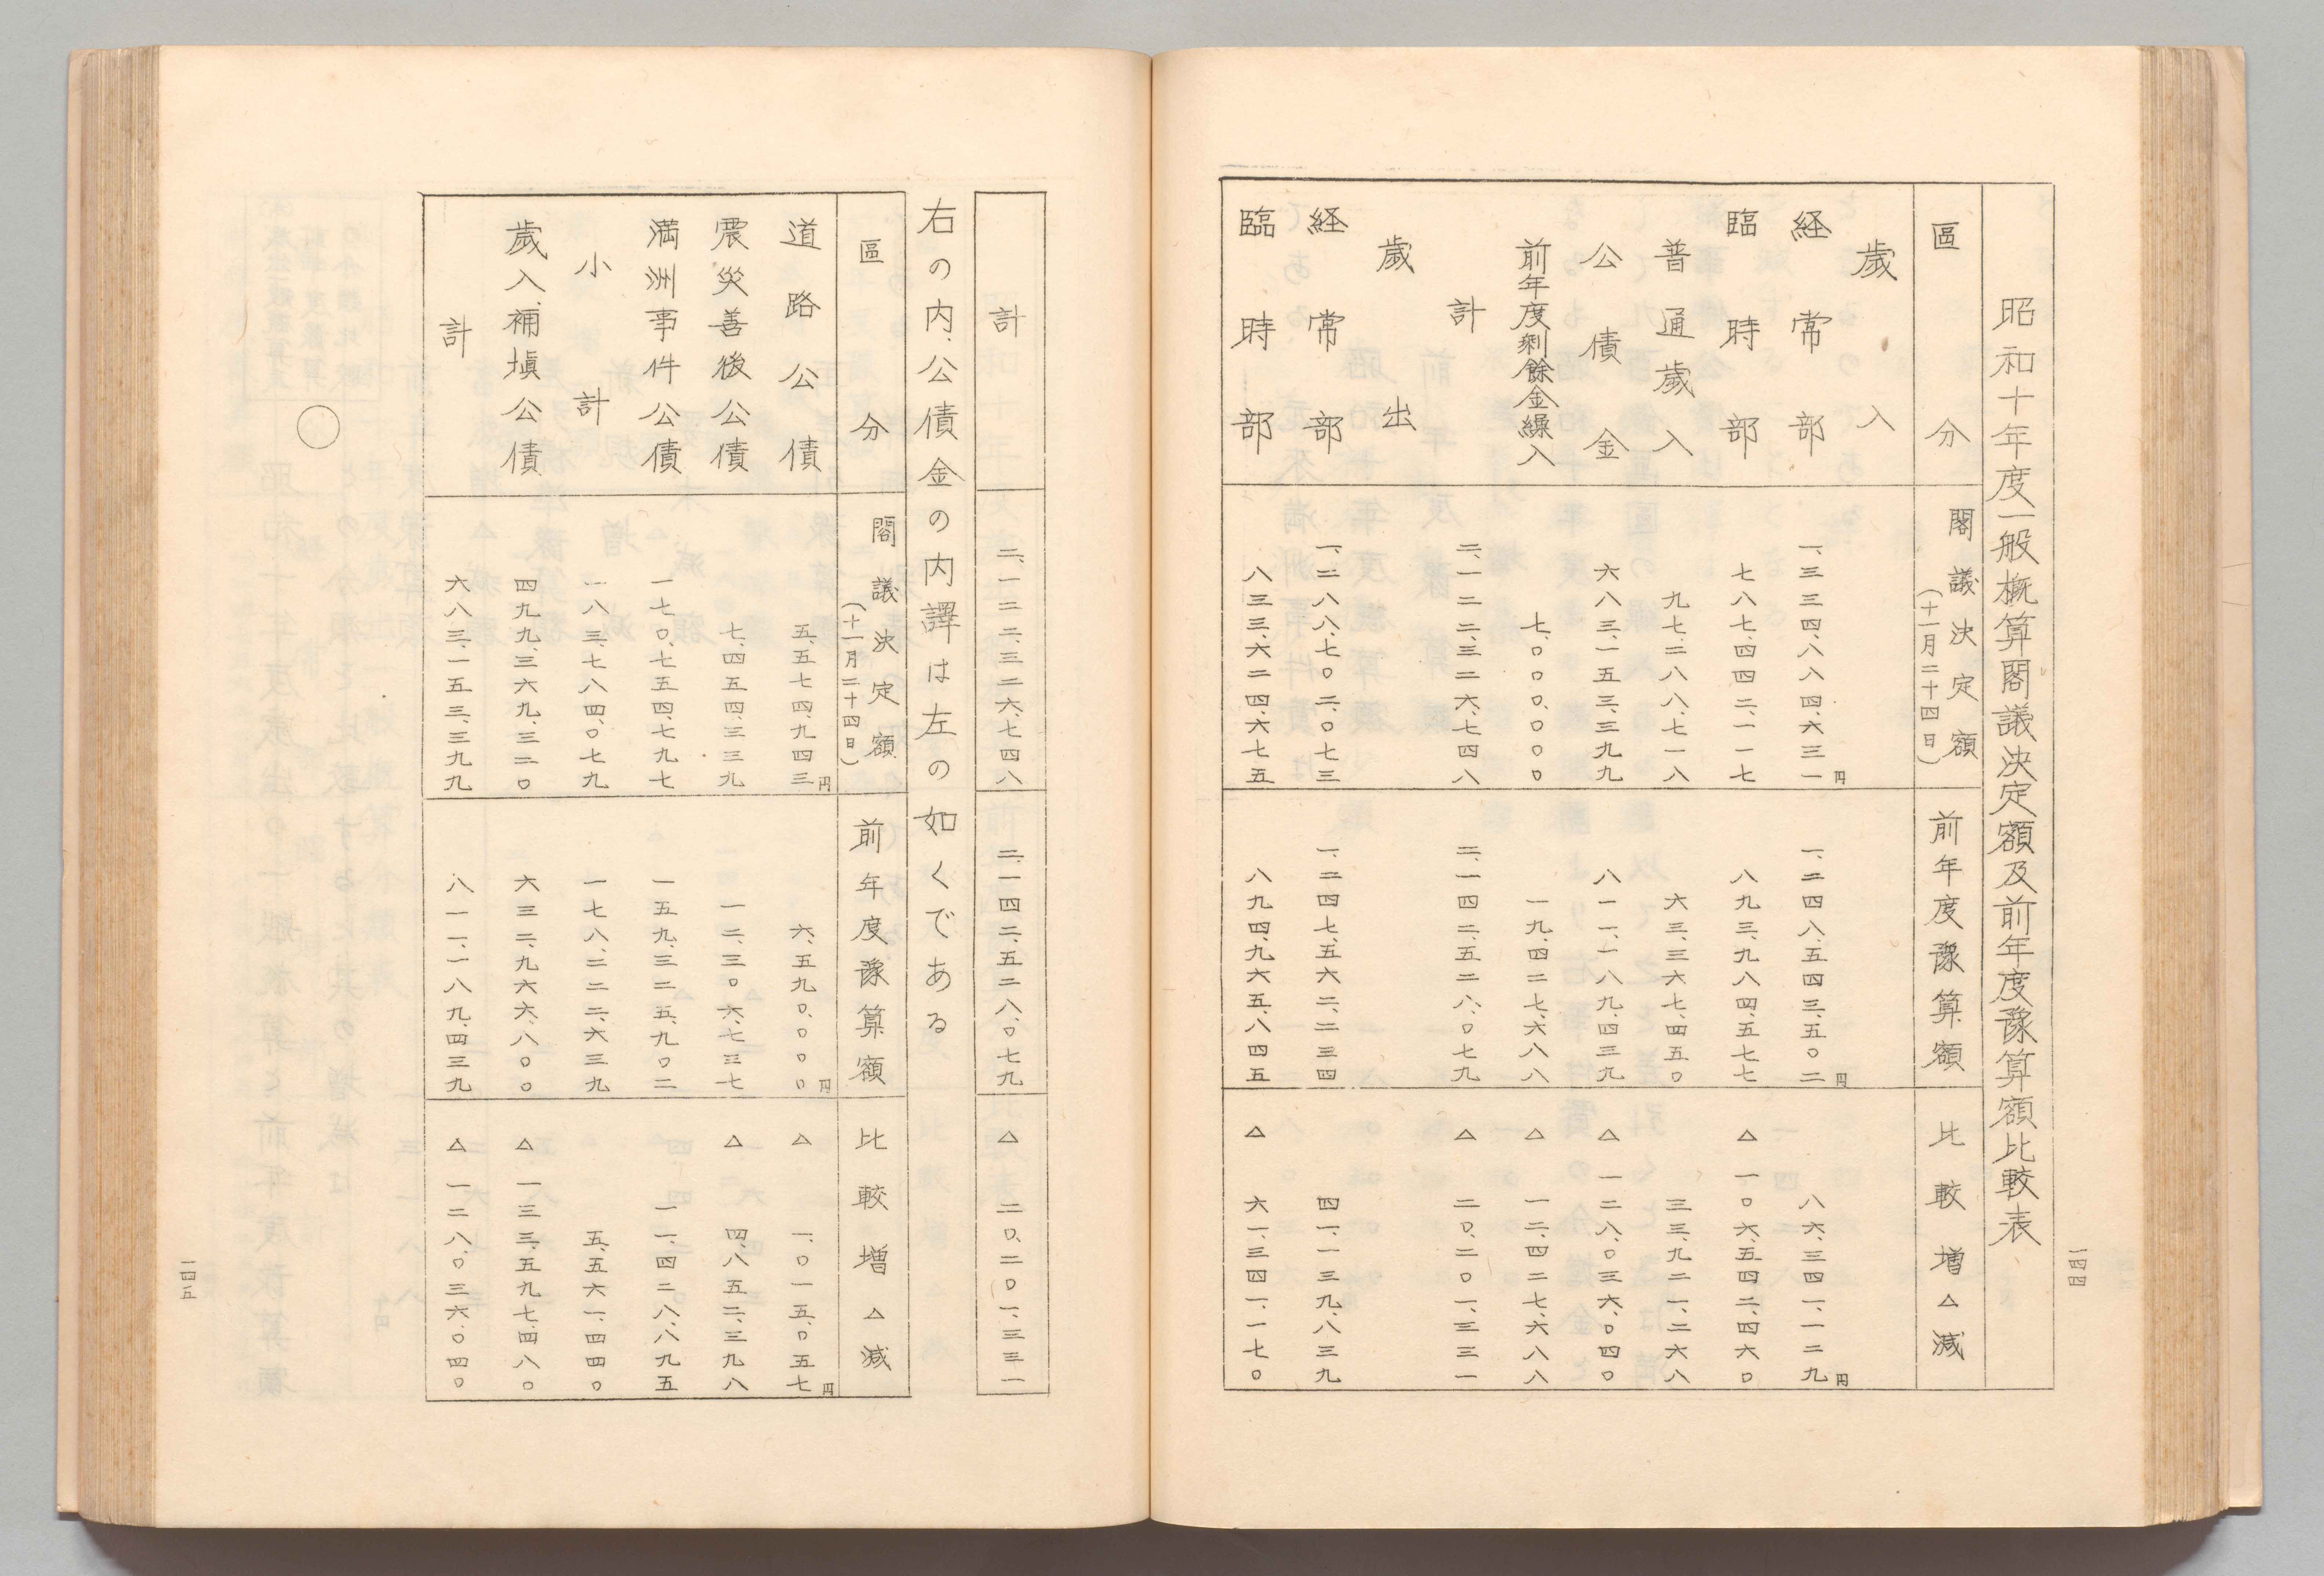 昭和十年度一般概算閣議決定額及前年度豫算額比較表
區分 閣議決定額(十一月二十四日) 前年度豫算額 比較増△減
歳入
経常部 一、三三四、八八四、六三一円 一、二四八、五四三、五〇二円 八六、三四一、一二九円
臨時部 七八七、四四二、一一七 八九三、九八四、五七七 △一〇六、五四二、四六〇
普通歳入 九七、二八八、七一八 六三、三六七、四五〇 三三、九二一、二六八
公債金 六八三、一五三、三九九 八一一、一八九、四三九 △一二八、〇三六、〇四〇
前年度剰餘金繰入 七、〇〇〇、〇〇〇 一九、四二七、六八八 △一二、四二七、六八八
計 二、一二二、三二六、七四八 二、一四二、五二八、〇七九 △二〇、二〇一、三三一
歳出
経常部 一、二八八、七〇二、〇七三 一、二四七、五六二、二三四 四一、一三九、八三九
臨時部 八三三、六二四、六七五 八九四、九六五、八四五 △六一、三四一、一七〇
一四四
計 二、一二二、三二六、七四八 二、一四二、五二八、〇七九 △二〇、二〇一、三三一
右の内、公債金の内譯は左の如くである
區分 閣議決定額(十一月二十四日) 前年度豫算額 比較増△減
道路公債 五、五七四、九四三円 六、五九〇、〇〇〇円 △一、〇一五、〇五七円
震災善後公債 七、四五四、三三九 一二、三〇六、七三七 △四、八五二、三九八
満洲事件公債 一七〇、七五四、七九七 一五九、三二五、九〇二 一一、四二八、八九五
小計 一八三、七八四、〇七九 一七八、二二二、六三九 五、五六一、四四〇
歳入補塡公債 四九九、三六九、三二〇 六三二、九六六、八〇〇 △一三三、五九七、四八〇
計 六八三、一五三、三九九 八一一、一八九、四三九 △一二八、〇三六、〇四〇
一四五